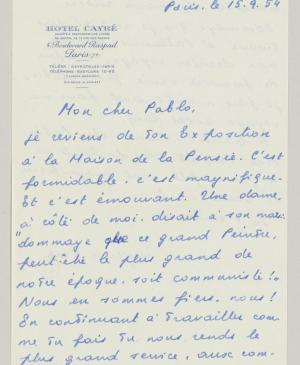 Paris. le 15.9.54
HÔTEL CAYRÉ
4, Boulevard Raspail
Paris
Mon cher Pablo,
je reviens de ton Exposition
à la Maison de la Pensée. C'est
formidable. c'est magnifique.
Et c'est émouvant. Une dame,
à côté de moi. disait à son mari:
"dommage que ce grand Peintre,
peut-être le plus grand de
notre époque. soit communiste!"
Nous en sommes fiers. nous!
En continuant à travailler com-
me tu fais tu nous rends le
plus grand service, aux com-